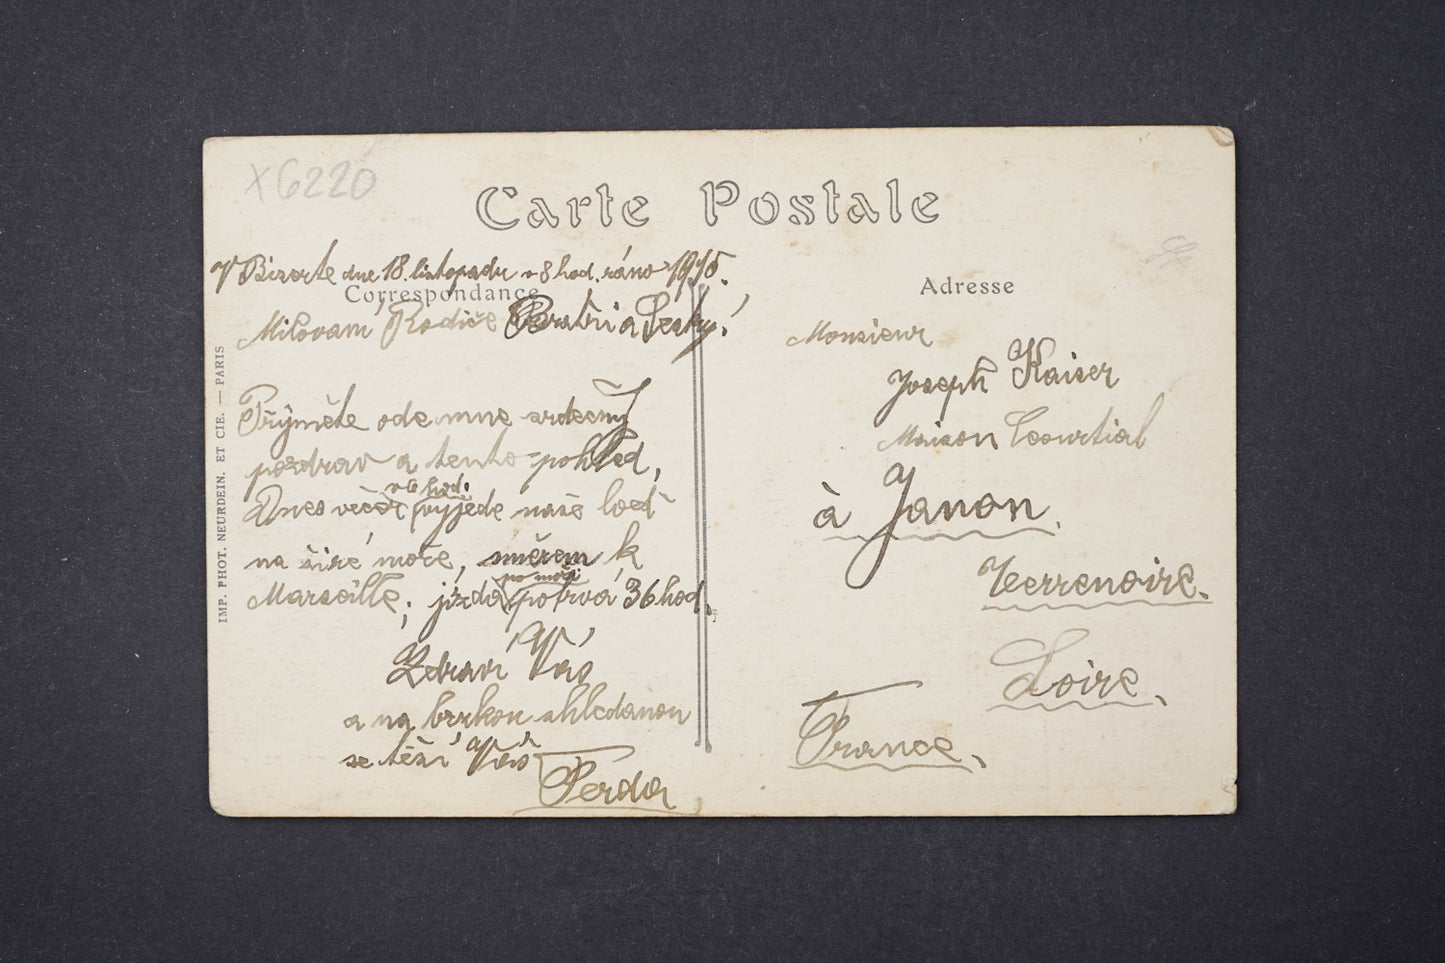 X6220
Carte Postale
V Bizerte dne 18. listopadu v 8 hod. ráno 1915.
Correspondance
Milovaní Rodiče Bratři a
Přijměte ode mne srdečný
pozdrav a tento pohled,
Dnes večer v 6 hod. vyjede naše loď
na širé moře, směrem k
Marseille, jízda po moři potrvá 36 hod.
Zdraví Vás
a na brzkou shledanou
se těší Váš
Ferda
IMP. PHOT. NEURDEIN. ET CIE. — PARIS
Adresse
Monsieur
Joseph Kaiser
Maison Courtial
à Janon
Terrenoire.
Loire,
France.